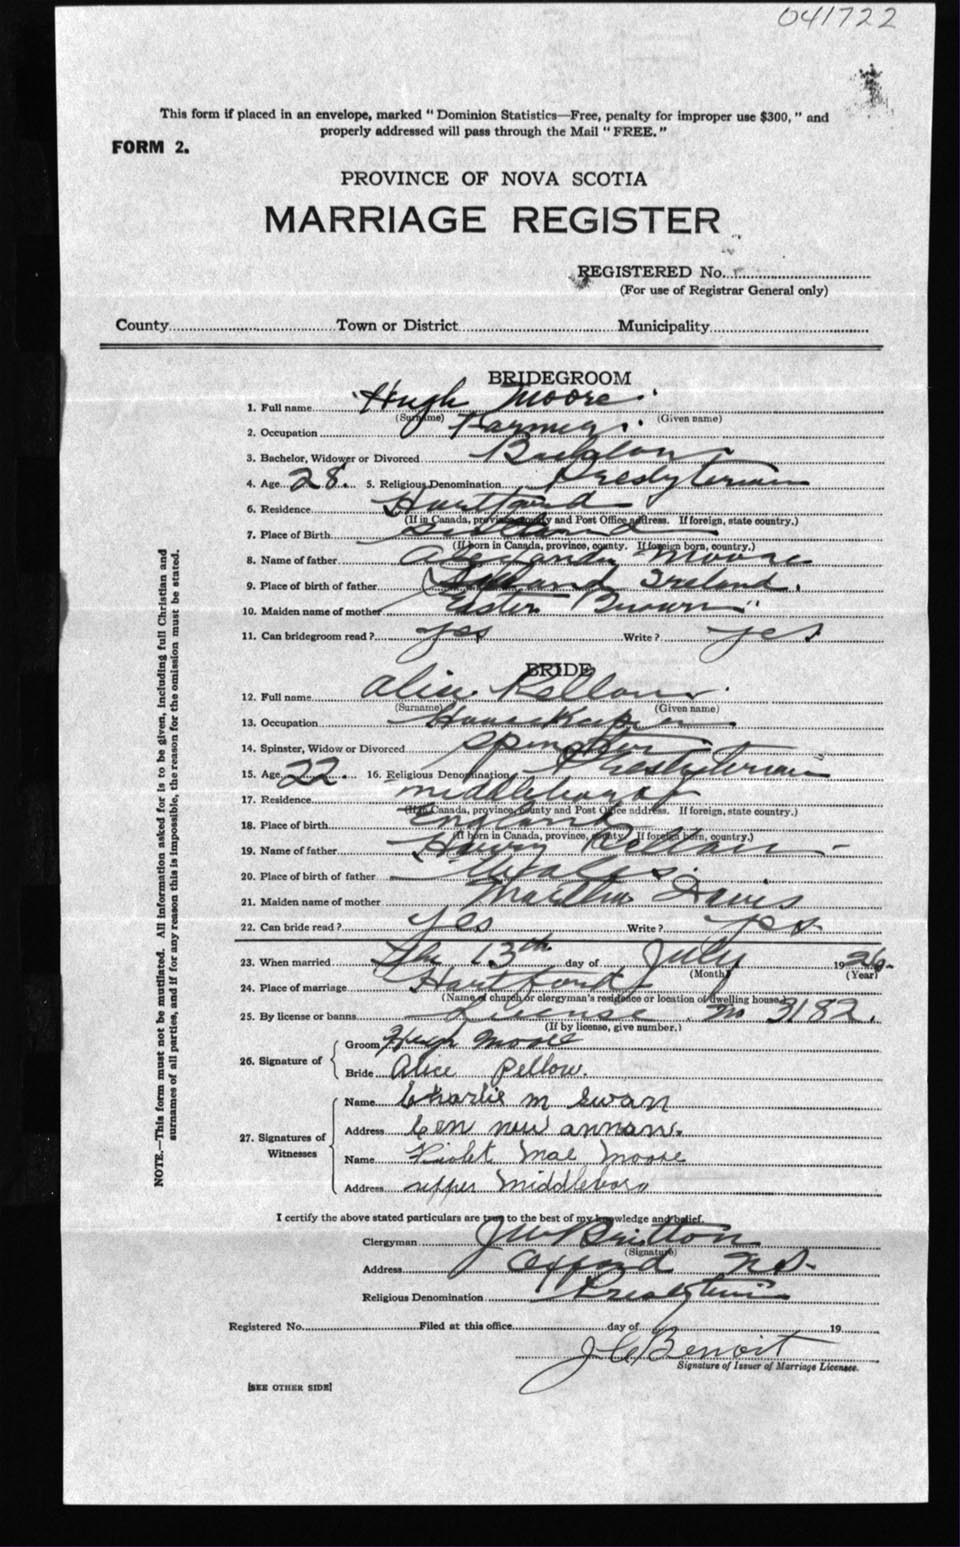 041722
This form if placed in an envelope, marked "Dominion Statistics—Free, penalty for improper use $300," and
properly addressed will pass through the Mail "FREE."
FORM 2.
PROVINCE OF NOVA SCOTIA
MARRIAGE REGISTER
REGISTERED No.
(For use of Registrar General only)
County Town or District Municipality
BRIDEGROOM
1. Full name Hugh Moore
(Surname) (Given name)
2. Occupation Farmer
3. Bachelor, Widower or Divorced Bachelor
4. Age 28. 5. Religious Denomination Presbyterian
6. Residence Hartford
(If in Canada, province, county and Post Office address. If foreign, state country.)
7. Place of Birth
(If born in Canada, province, county. If foreign born, country.)
8. Name of father Alexander Moore
9. Place of birth of father Ireland.
10. Maiden name of mother Brown
11. Can bridegroom read? yes Write? yes
BRIDE
12. Full name Alice
(Surname) (Given name)
13. Occupation Housekeeper
14. Spinster, Widow or Divorced Spinster
15. Age 22. 16. Religious Denomination Presbyterian
17. Residence
(If in Canada, province, county and Post Office address. If foreign, state country.)
18. Place of birth England
(If born in Canada, province, county. If foreign born, country.)
19. Name of father Harry
20. Place of birth of father Wales.
21. Maiden name of mother Martha Davis
22. Can bride read? yes Write? yes
23. When married the 13th day of July 1926.
(Month) (Year)
24. Place of marriage Hartford
(Name of church or clergyman's residence or location of dwelling house)
25. By license or banns License No 3182.
(If by license, give number.)
26. Signature of
Groom Hugh Moore
Bride Alice Pellow.
27. Signatures of Witnesses
Name Charlie M Swan
Address Cen New Annan.
Name Violet Mae Moore
Address upper Middleboro
I certify the above stated particulars are true to the best of my knowledge and belief.
Clergyman J W Britton
(Signature)
Address Oxford N.S.
Religious Denomination Presbyterian
Registered No. Filed at this office day of 19
J C Benoit
Signature of Issuer of Marriage Licenses.
[SEE OTHER SIDE]
NOTE.—This form must not be mutilated. All information asked for is to be given, including full Christian and
surnames of all parties, and if for any reason this is impossible, the reason for the omission must be stated.